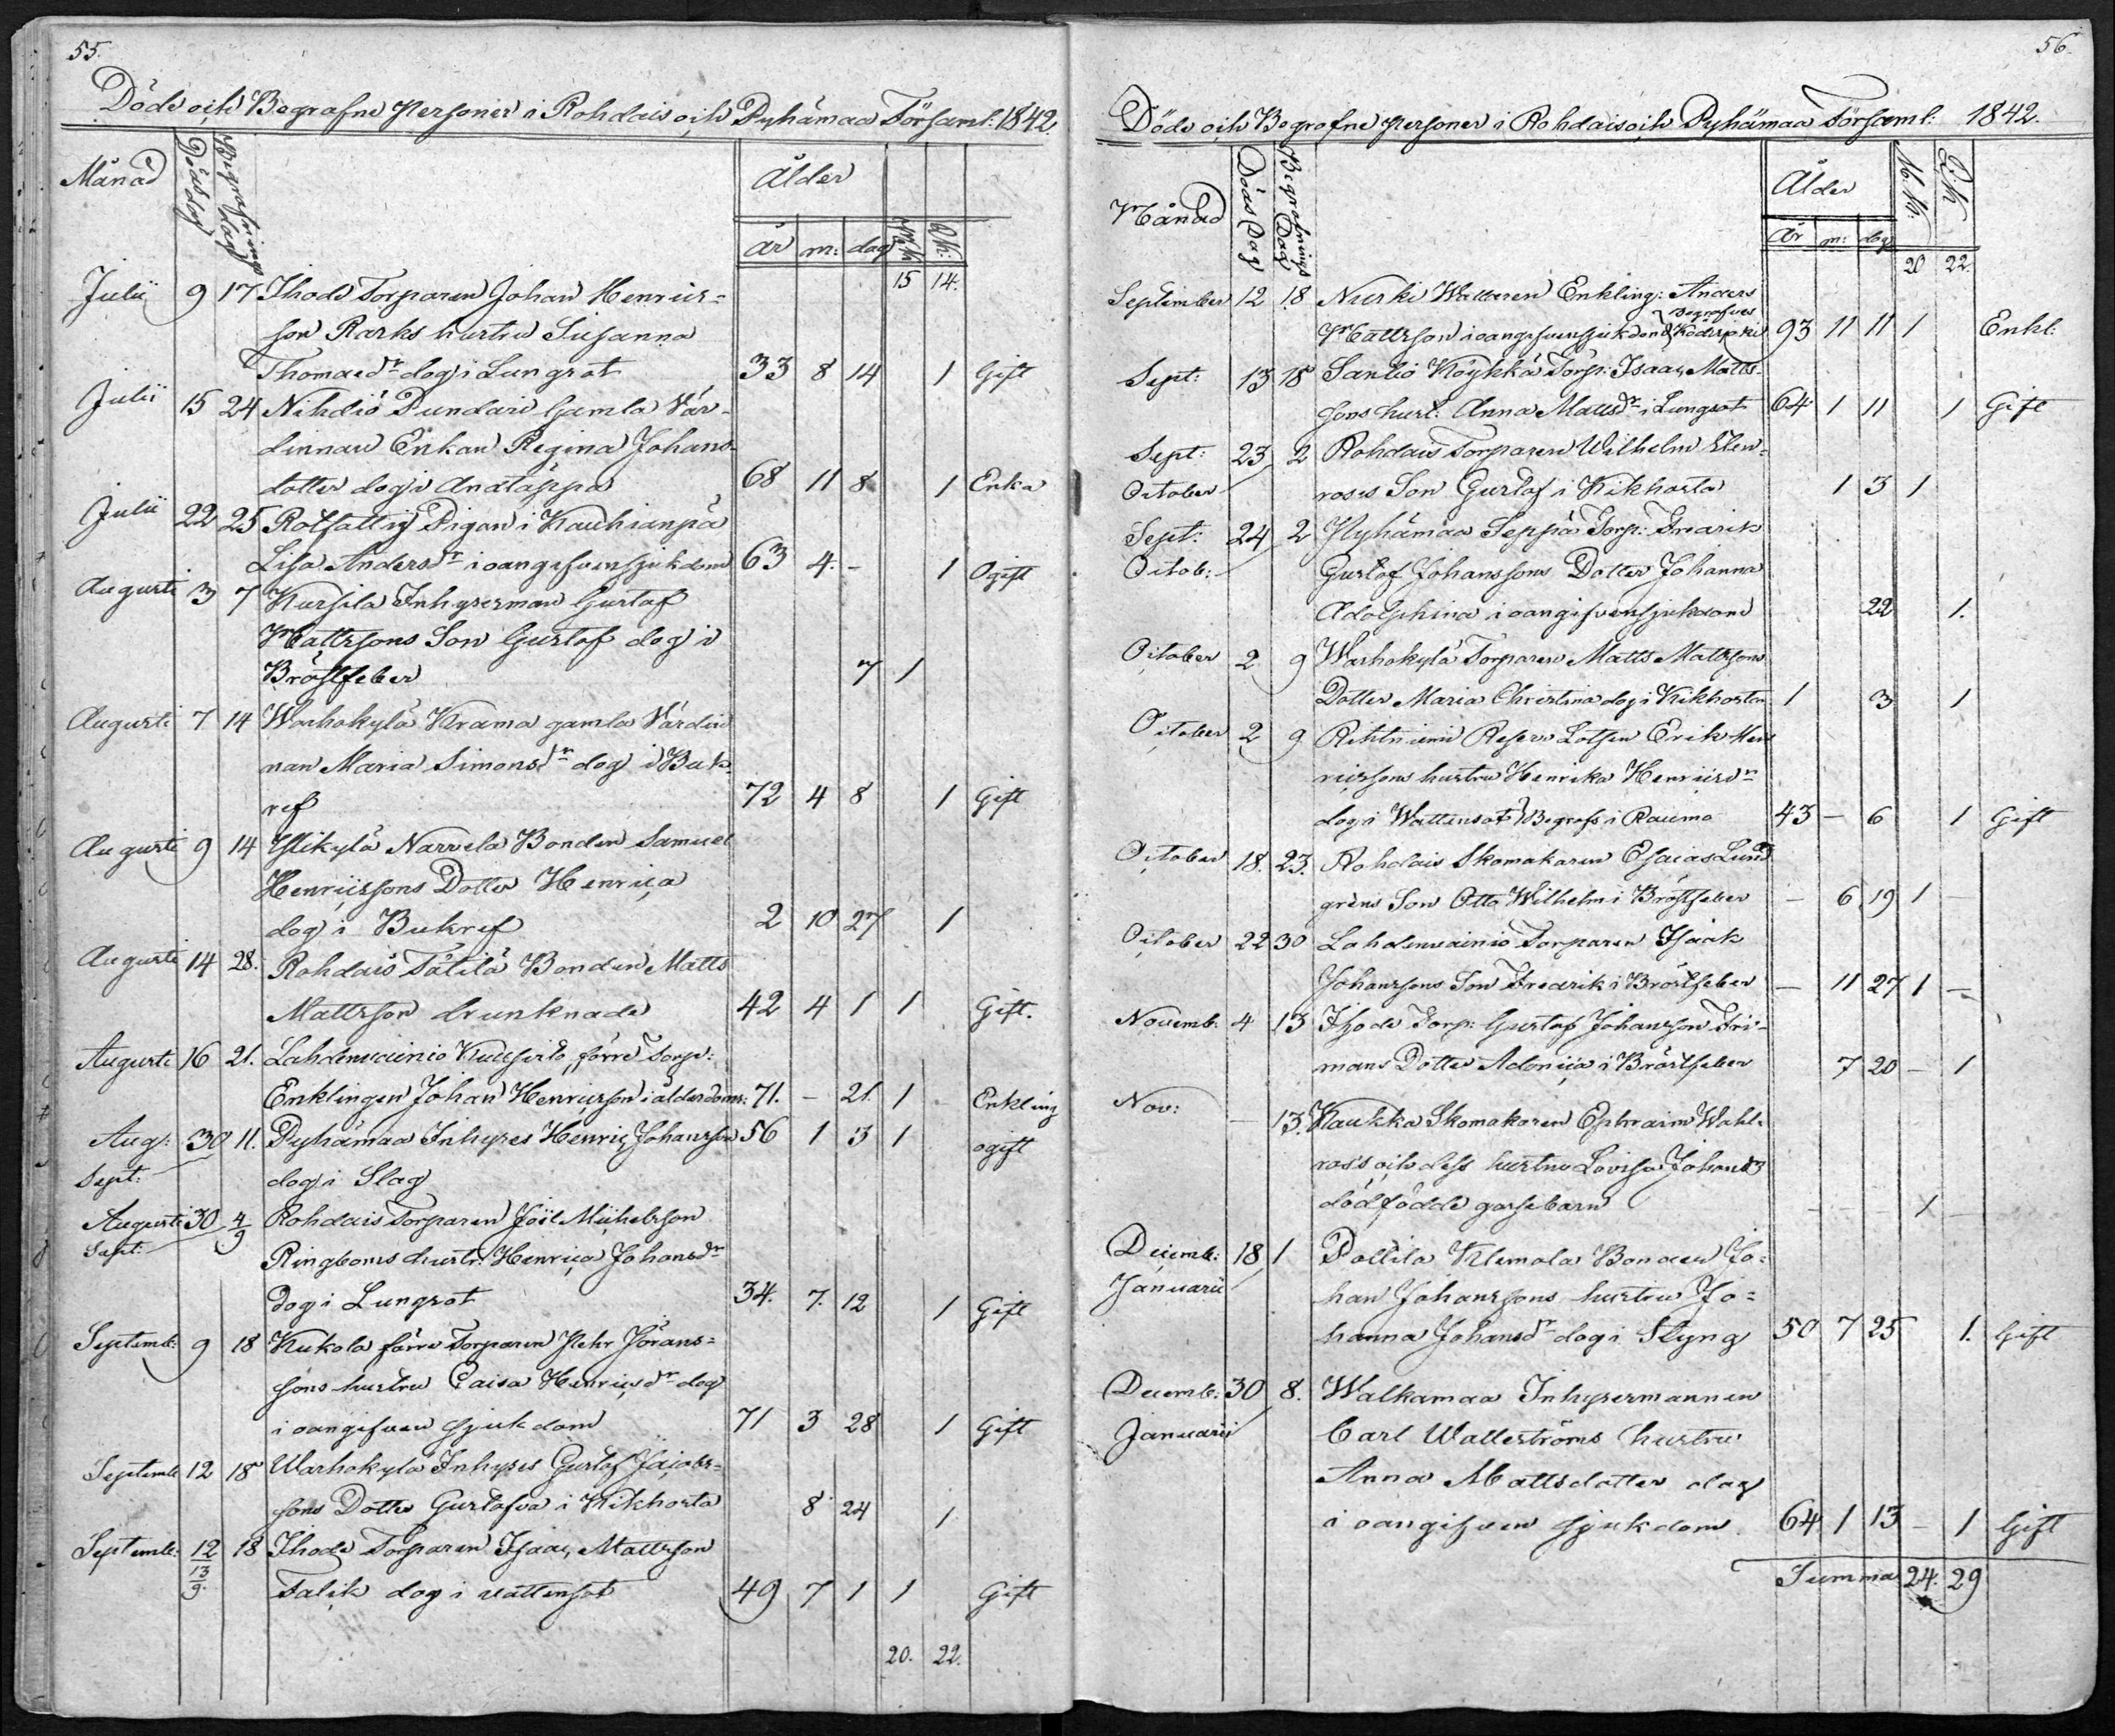 55.
Döde och Begrafne Personer i Rohdais och Pyhämaa Församl: 1842.
Månad Dödsdag Begrafnings dag Ålder
år m: dag Mk Qk:
15 14.
Julii 9 17 Ihode Torparen Johan Henrics-
son Rarks hustru Susanna
Thomaedr dog i Lungsot 33 8 14 1 Gift
Julii 15 24 Nihdiö Pundari Gamla Vär-
dinnan Enkan Regina Johans-
dotter dog i Andtäppa 68 11 8 1 Enka
Julii 22 25 Rotfattig Pigan i Kauhianpä
Lisa Andersdr i oangifven sjukdom 63 4. - 1 Ogift
Augusti 3 7 Kursila Inhysesman Gustaf
Mattssons Son Gustaf dog i
Bröstfeber 7 1
Augusti 7 14 Warhokylä Krama gamla Värdin
nan Maria Simonsdr dog i Buk-
ref 72 4 8 1 Gift
Augusti 9 14 Ylikylä Narvela Bonden Samuel
Henricssons Dotter Henrica
dog i Bukref 2 10 27 1
Augusti 14 28. Rohdais Tätilä Bonden Matts
Mattsson drunknade 42 4 1 1 Gift.
Augusti 16 21. Lahdenvainio förre Torp:
Enklingen Johan Henricsson i ålderdoms: 71. - 21. 1 Enkling
Aug: 30 11. Pyhämaa Inhyses Henric Johansson 56 1 3 1 ogift
Sept: dog i Slag
Augusti 30 4/9 Rohdais Torparen Joël Michelsson
Sept: Ringboms hustr. Henrica Johansdr
dog i Lungsot 34. 7. 12 1 Gift
Septemb: 9 18 Kukola förre Torparen Pehr Jörans-
sons hustru Caisa Henricsdr dog
i oangifven sjukdom 71 3 28 1 Gift
Septemb 12 18 Warhokylä Inhyses Gustaf Jacobs-
sons Dotter Gustafva i Kikhosta 8 24 1
Septemb: 12 18 Ihode Torparen Isaac Mattsson
13
9. Falik dog i vattensot 49 7 1 1 Gift
20. 22.
56.
Döde och Begrafne personer i Rohdais och Pyhämaa Församl: 1842.
Månad Döds Dag Begrafnings Dag Ålder M.k. Q.k
År m: dag
20 22.
September 12 18. Nurki Wattaren Enkling: Anders
Begrafves
Mattsson i oangifven sjukdom i Kodispki 93 11 11 1 Enkl:
Sept: 13 18 Santio Köykkä Torp: Isaac Matts-
sons hust: Anna Mattsdr i Lungsot 64 1 11 1 Gift
Sept: 23 2 Rohdais Torparen Wilhelm Elen-
October roses Son Gustaf i Kikhosta 1 3 1
Sept: 24 2 Pyhämaa Seppä Torp: Fredrik
Octob: Gustaf Johanssons Dotter Johanna
Adolphina i oangifven sjukdom 22 1.
October 2 9 Warhokylä Torparen Matts Mattssons
Dotter Maria Christina dog i Kikhosta 1 3 1
October 2 9 Rihtniemi Reserv Lotsen Erik Hen
ricssons hustru Henrika Henricsdr
dog i Wattensot Begrafs i Raumo 43 - 6 1 Gift
October 18. 23. Rohdais Skomakaren Esaias Lund
gréns Son Otto Wilhelm i Bröstfeber - 6 19 1 -
October 22 30 Lahdenvainio Torparen Isaak
Johanssons Son Fredrik i Bröstfeber - 11 27 1 -
Novemb: 4 13 Ihode Torp: Gustaf Johansson Fri-
mans Dotter Adonica i Bröstfeber 7 20 - 1
Nov: - 13. Kaukka Skomakaren Ephraim Wahl-
ross och dess hustru Lovisa Johansd
dödfödde gossebarn - - - 1 -
Decemb: 18 1 Polttila Klemola Bonden Jo-
Januarii han Johanssons hustru Jo-
hanna Johansdr dog i Styng 50 7 25 1. Gift
Decemb: 30 8. Walkamaa Inhysesmannen
Januarii Carl Wallströms hustru
Anna Mattsdotter dog
i oangifven sjukdom 64 1 13 - 1 Gift
Summa 24. 29